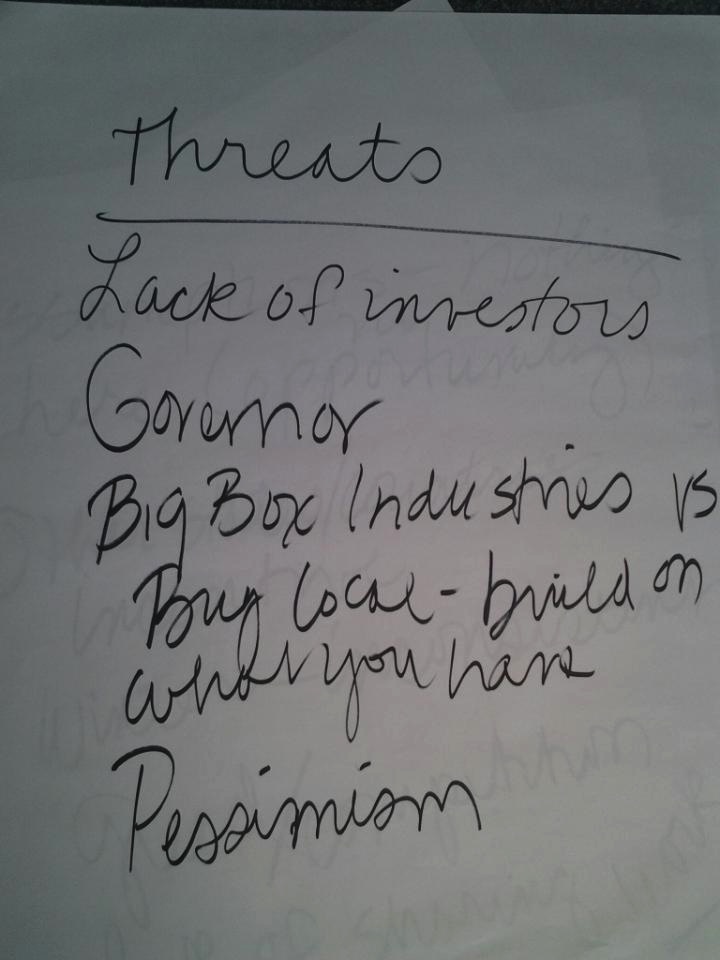 Threats
Lack of investors
Governor
Big Box Industries vs
Buy local - build on
what you have
Pessimism